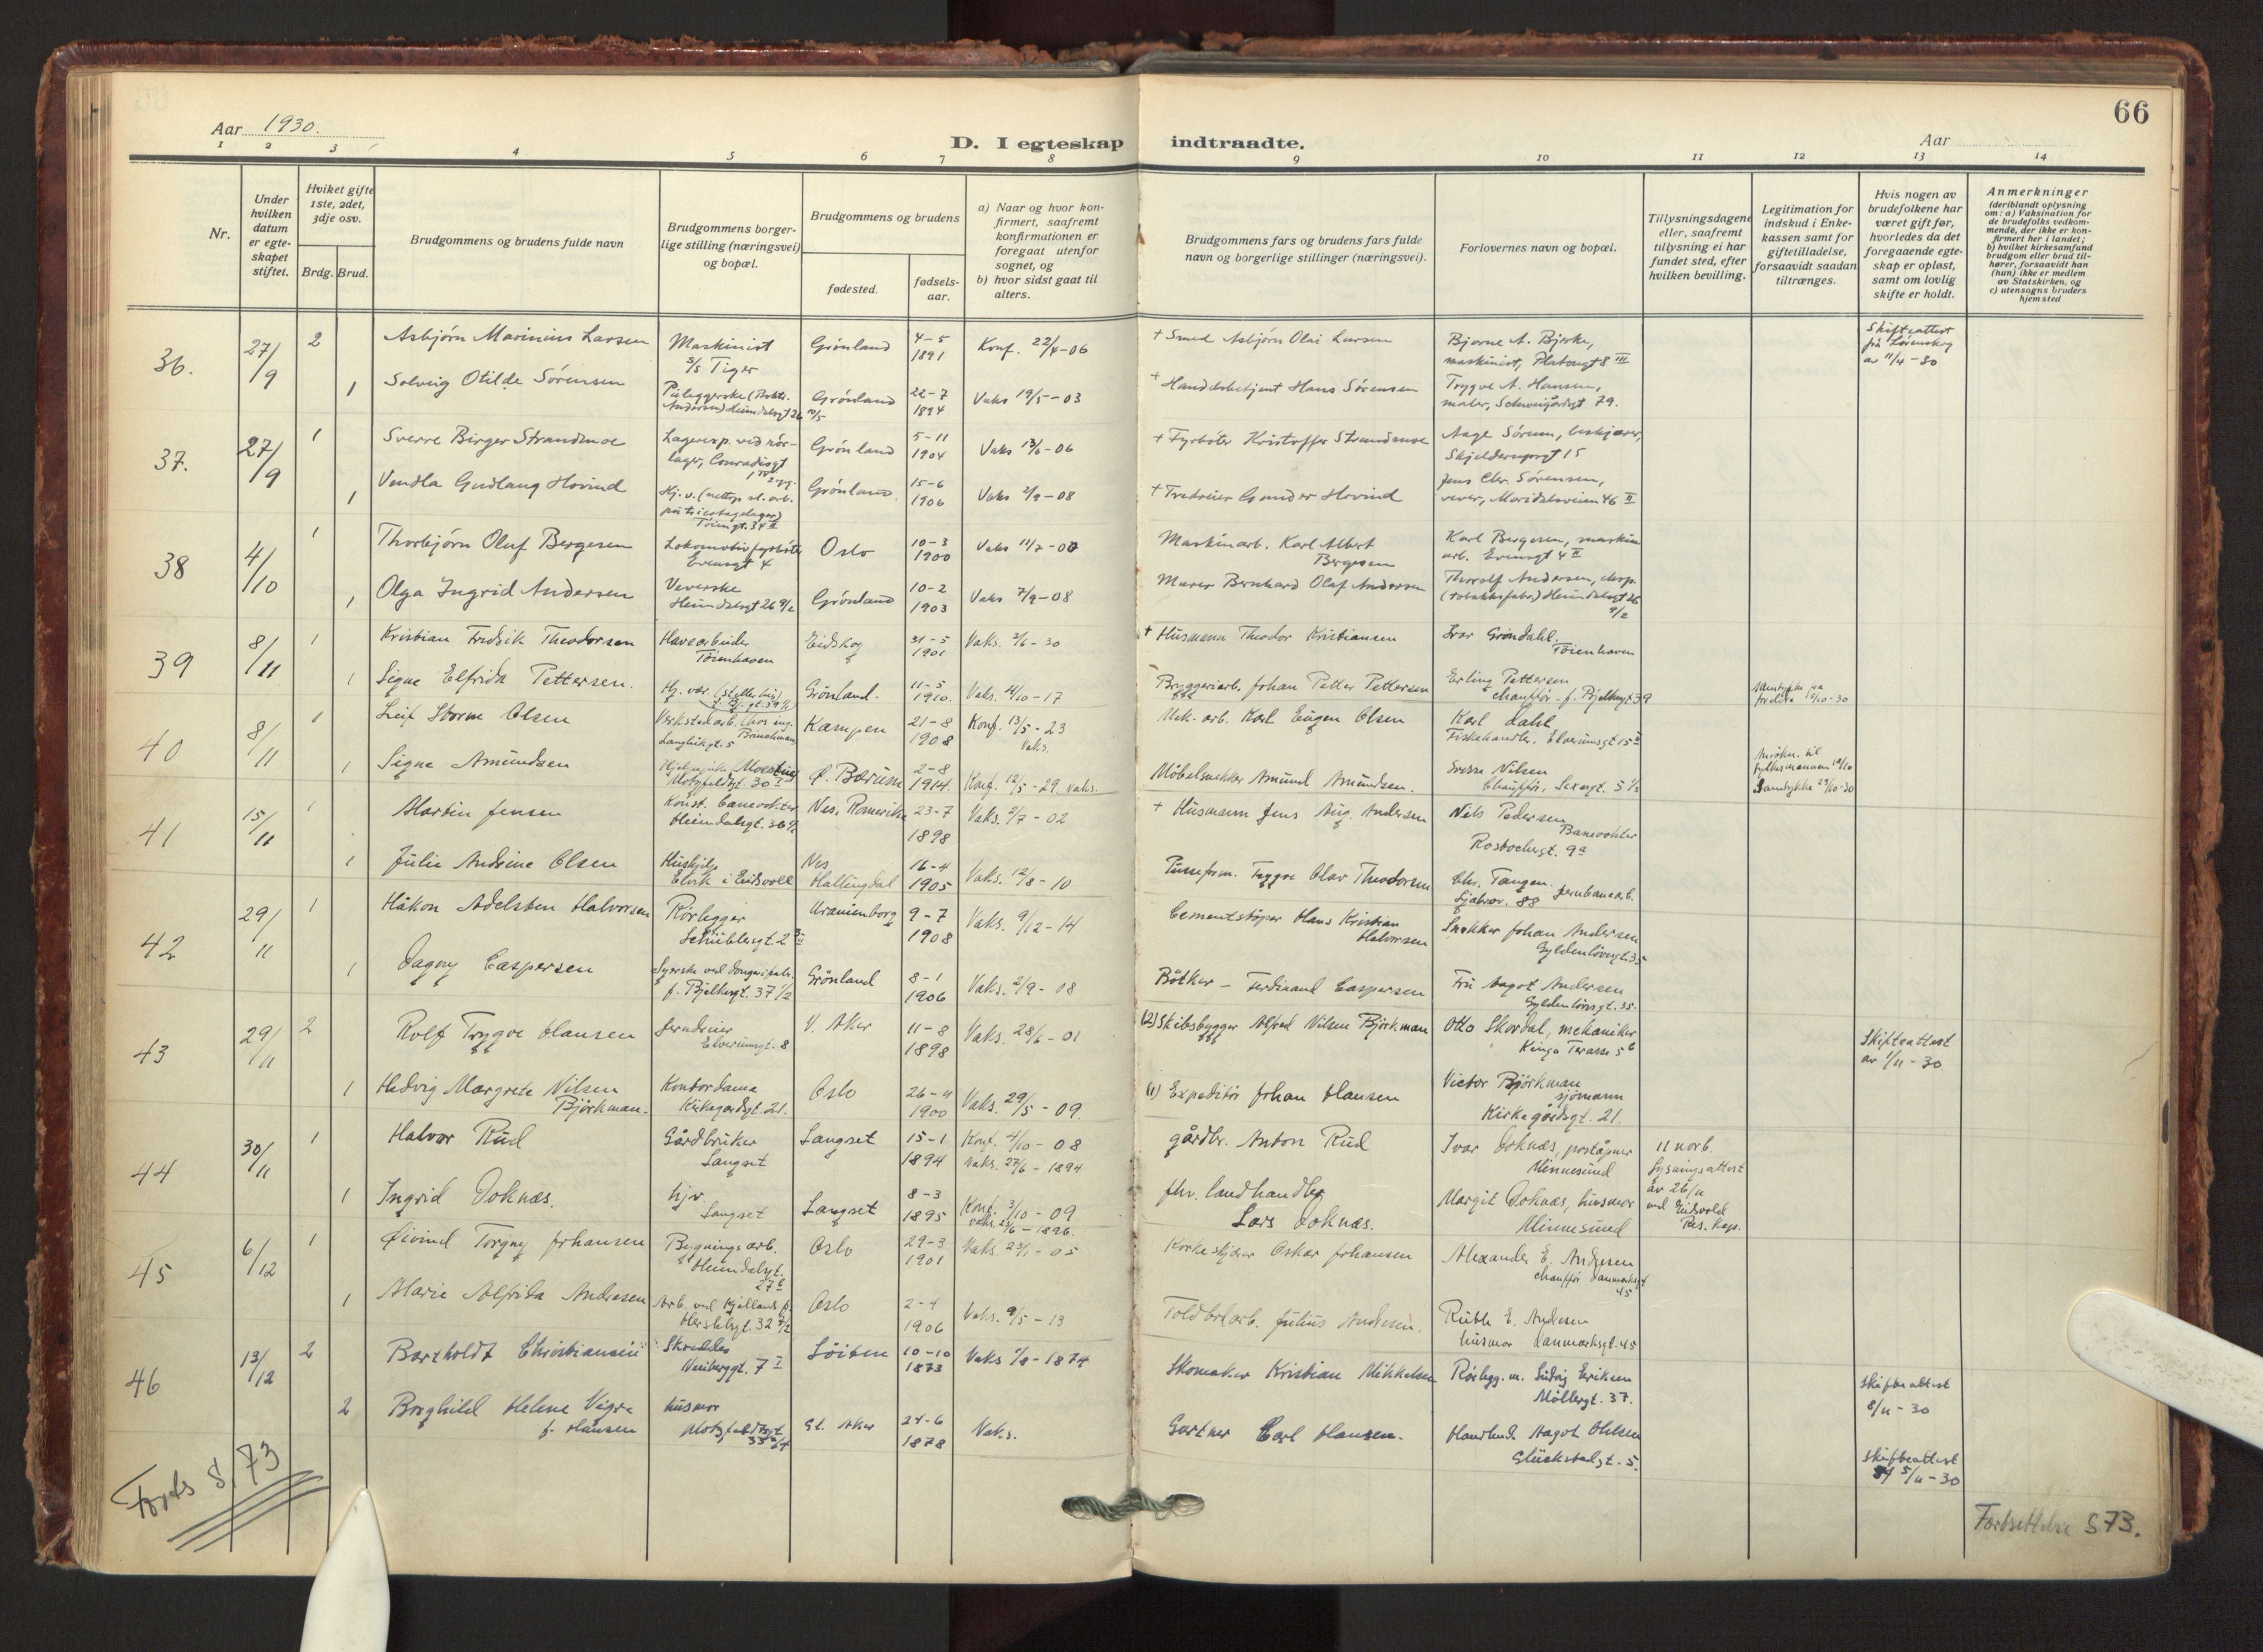 66
Aar 1930.
D. I egteskap indtraadte.
Aar
1 2 3 4 5 6 7 8 9 10 11 12 13 14
Nr.
Under hvilken datum er egte-skapet stiftet.
Hviket gifte 1ste, 2det, 3dje osv.
Brdg. Brud.
Brudgommens og brudens fulde navn
Brudgommens borger-lige stilling (næringsvei) og bopæl.
Brudgommens og brudens
fødested.
fødsels-aar.
a) Naar og hvor kon-firmert, saafremt konfirmationen er foregaat utenfor sognet, og
b) hvor sidst gaat til alters.
Brudgommens fars og brudens fars fulde navn og borgerlige stillinger (næringsvei).
Forlovernes navn og bopæl.
Tillysningsdagene eller, saafremt tillysning ei har fundet sted, efter hvilken bevilling.
Legitimation for indskud i Enke-kassen samt for giftetilladelse, forsaavidt saadan tiltrænges.
Hvis nogen av brudefolkene har været gift før, hvorledes da det foregaaende egte-skap er opløst, samt om lovlig skifte er holdt.
Anmerkninger
(deriblandt oplysning om: a) Vaksination for de brudefolks vedkom-mende, der ikke er kon-firmert her i landet;
b) hvilket kirkesamfund brudgom eller brud til-hører, forsaavidt han (hun) ikke er medlem av Statskirken, og
c) utensogns bruders hjemsted
36. 27/9 2 Asbjørn Marinius Larsen Maskinist S/s Tiger Grønland 4-5 1891 Konf. 22/4-06 + Smed Asbjørn Olai Larsen Bjarne A. Bjerke, maskinist, Platougt 8 III Skifteattest fra Lørenskog av 11/4-30
1 Solveig Otilde Sørensen Grønland 22-7 1894 Vaks 19/5-03 + Handelsbetjent Hans Sørensen Trygve A. Hansen, maler, Schweigårdsgt 79.
37. 27/9 1 Sverre Birger Strandmoe Lagerexp. ved rør-lager, Conradisgt Grønland 5-11 1904 Vaks 13/6-06 + Fyrbøter Kristoffer Strandmoe Aage Sørum, Skjeldrupsgt 15
1 Vendla Gudlaug Hovind Grønland 15-6 1906 Vaks 2/9-08 + Trædreier Gunder Hovind Jens Chr. Sørensen, vever, Maridalsveien 46 II
38 4/10 1 Thorbjørn Oluf Bergesen Lokomotivfyrbøter Evensgt 4 Oslo 10-3 1900 Vaks 11/7-00 Maskinarb. Karl Albert Bergesen Karl Bergesen, maskin arb. Evensgt 4 II
1 Olga Ingrid Andersen Veverske Heimdalsgt 26 Grønland 10-2 1903 Vaks 7/9-08 Murer Bernhard Olaf Andersen Thorolf Andersen, (tobakksfabr.) Heimdalsgt 26
39 8/11 1 Kristian Fredrik Theodorsen Havearbeider Tøienhaven Eidskog 31-5 1901 Vaks. 2/6-30 + Husmann Theodor Kristiansen Ivar Grøndahl. Tøienhaven
1 Signe Elfrida Pettersen. Grønland. 11-5 1910. Vaks. 4/10-17 Bryggeriarb. Johan Petter Pettersen Erling Pettersen chauffør - J. Bjelkesgt 39 Samtykke fra foreldre
40 8/11 1 Leif Storm Olsen Langleikgt. 5 Kampen 21-8 1908 Konf. 13/5-23 Vaks. Mek. arb. Karl Eugen Olsen Karl Dahl Fiskehandler, Elverumsgt 15 II
1 Signe Amundsen Motzfeldtsgt. 30 I Ø. Bærum 2-8 1914. Konf. 12/5-29 vaks. Møbelsnekker Amund Amundsen. Sverre Nilsen Chauffør, Lexowgt. 5 fylkesmannen Samtykke 29/10-30
41 15/11 1 Martin Jensen Konst. banevokter Heimdalsgt. 36 Nes, Romerike 23-7 1898 Vaks. 2/7-02 + Husmann Jens Aug. Andersen Nils Pedersen Banevokter Rostocksgt. 9a
1 Julie Andrine Olsen Hushjelp Elvik i Eidsvoll Nes Hallingdal 16-4 1905 Vaks. 12/8-10 Pusseform. Trygve Olav Theodorsen Chr. Tangen. jernbanearb. 88
42 29/11 1 Håkon Adelsten Halvorsen Rørlegger Schüblersgt. 2 Uranienborg 9-7 1908 Vaks. 9/12-14 Cementstøper Hans Kristian Halvorsen Snekker Johan Andersen Gyldenløvesgt. 35
1 Dagny Caspersen J. Bjelkesgt. 37 1/2 Grønland 8-1 1906 Vaks. 2/9-08 Bøtker - Ferdinand Caspersen Fru Aagot Andersen Gyldenløvesgt. 35.
43 29/11 2 Rolf Trygve Hansen Jerndreier Elverumsgt. 8 V. Aker 11-8 1898 Vaks. 28/6-01 (2) Skibsbygger Alfred Nilsen Björkman Otto Skordal, mekaniker Kings Terasse 5
Skifteattest av 1/11-30.
1 Hedvig Margrete Nilsen Björkman. Kontordame Kirkegårdsgt. 21. Oslo 26-4 1900 Vaks. 29/5-09. (1) Expeditør Johan Hansen Victor Björkman sjømann Kirkegårdsgt. 21.
44 30/11 1 Halvor Rud Gårdbruker Langset Langset 15-1 1894 Konf. 4/10-08 Vaks. 27/6-1894 gårdbr. Anton Rud Ivar Doknæs, poståpner Minnesund Lysningsattest av 26/11 ved Eidsvold Res. kap.
1 Ingrid Doknæs. hjv. Langset Langset 8-3 1895 Konf. 3/10-09 vaks. 1896. fhv. landhandler Lars Doknæs. Margit Doknæs, husmor Minnesund
45 6/12 1 Øivind Torgny Johansen Bygningsarb. Heimdalsgt. 27 Oslo 29-3 1901 Vaks. 23/1-05 Korkeskjærer Oskar Johansen Alexander E. Andresen chauffør Danmarksgt 45
1 Marie Alfrida Andresen Herslebsgt. 32 Oslo 2-4 1906 Vaks. 9/5-13 Toldbodarb. Julius Andresen. Ruth E. Andresen husmor Danmarksgt. 45
46 13/12 2 Bartholdt Christiansen Skredder Neuberggt. 7 I Løiten 10-10 1873 Vaks 1/8-1874 Skomaker Kristian Mikkelsen Rørlegg. m. Ludvig Eriksen Møllergt. 37. Skifteattest 8/11-30
2 Borghild Helene Vigre f. Hansen husmor Motzfeldtsgt Gl. Aker 24-6 1878 Vaks. Gartner Carl Hansen. Aagot Ohlsen Glückstadgt. 5. Skifteattest 5/11-30
Forts S. 73
Fortsettelse S 73.